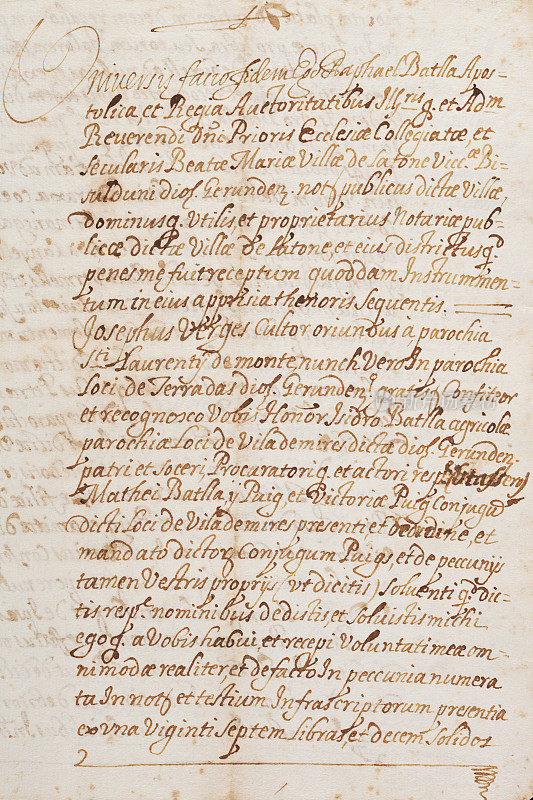 Universis facio fidem Ego Raphael Batlla Apos=
tolica, et Regia Auctoritatibus Ill.ris q. et Adm
Reverendi Dnc Prioris Ecclesiæ Collegiatæ, et
secularis Beatæ Mariæ Villæ de Latone Vicc.æ Bi=
sulduni dios. Gerunden. not. publicus dictæ Villæ,
dominusq. Utilis, et proprietarius Notariæ pub=
licæ dictæ Villæ de Latone, et eius districtus q.
penes me fuit receptum quoddam Instrummen=
tum in eius apprisia thenoris sequentis.
Josephus Verges Cultor oriundus à parochia
S.ti Laurentij de monte, nunch Vero In parochia
Loci de Terradas dios. Gerunden. gratis Confiteor
et recognosco Vobis Honor. Isidro Batlla agricolæ
parochiæ Loci de Vilademires dictæ dios. Gerunden.
patri et soceri, Procuratori q. et actori resp.
Mathei Batlla y Puig, et Victoriæ Puig Conjugu
dicti Loci de Vilademires presenti, et de ordine, et
mandato dictor. Conjugum Puigs, et de peccunijs
tamen Vestris proprijs (ut dicitis) solventi q. dic=
tis resp. nominibus dedistis et solvistis mithi
ego q. a Vobis habui, et recepi Voluntati meæ om=
nimodæ realiter et de facto In peccunia numera
ta In not. et testium Infrascriptorum presentia
ex una Viginti septem libras, et decem solidos